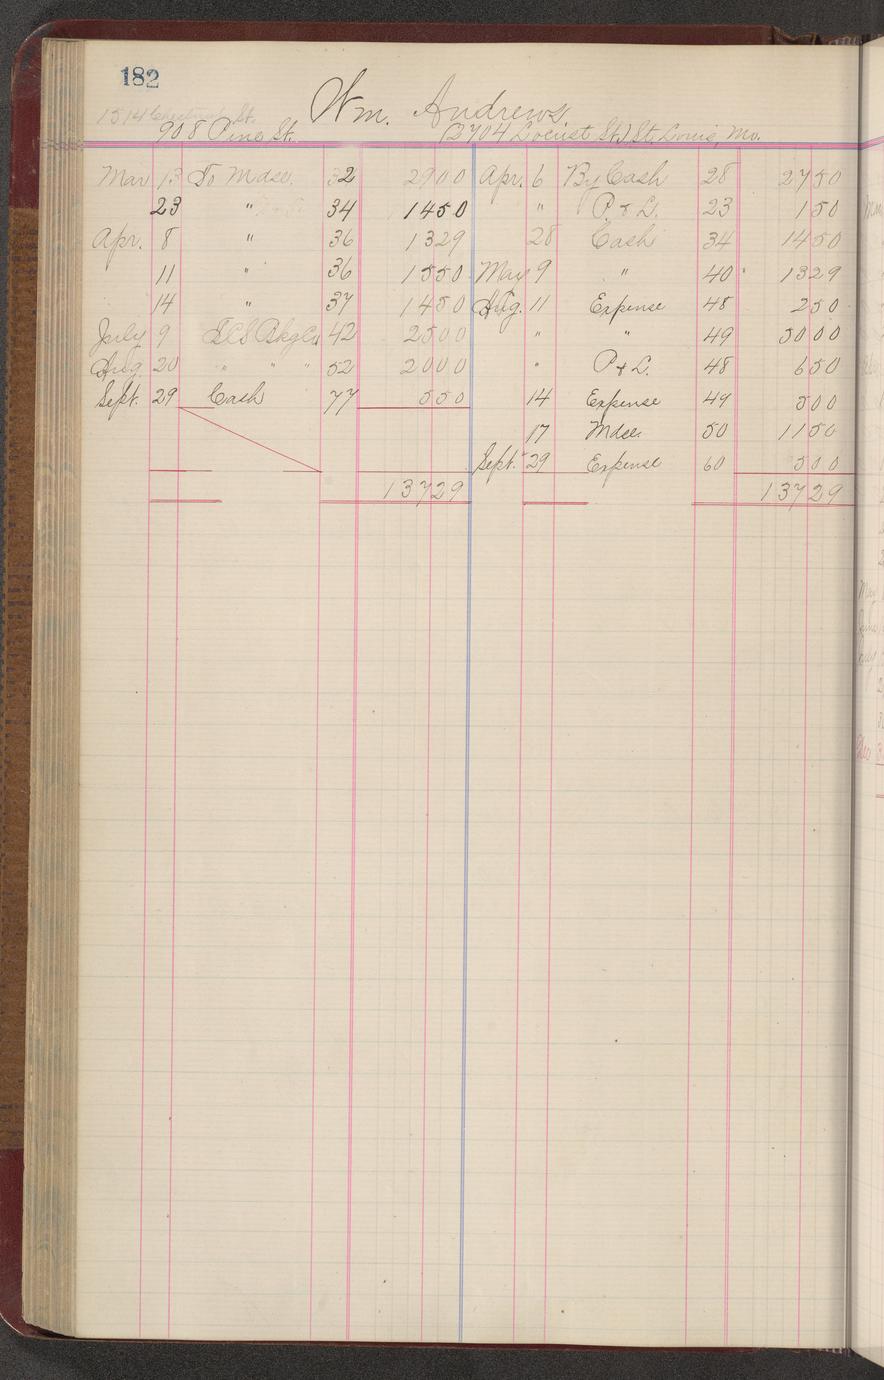 182
Wm. Andrews
1514 Chestnut St.
908 Pine St. (2704 Locust St.) St. Louis, Mo.
Mar 13 To Mdse. 32 2900 Apr. 6 By Cash 28 2750
23 " 34 1450 " P. & L. 23 150
Apr. 8 " 36 1329 28 Cash 34 1450
11 " 36 1550 May 9 " 40 1329
14 " 37 1450 Aug. 11 Expense 48 250
July 9 42 2500 " " 49 5000
Aug 20 " " " 52 2000 " P & L. 48 650
Sept. 29 Cash 77 550 14 Expense 49 500
17 Mdse. 50 1150
Sept. 29 Expense 60 500
13729 13729